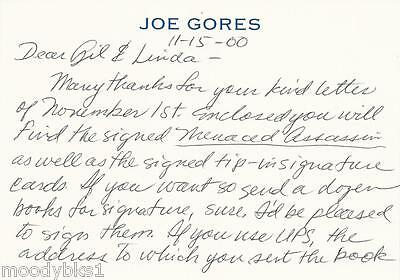 JOE GORES
11-15-00
Dear Gil & Linda -
Many thanks for your kind letter
of November 1st. Enclosed you will
find the signed Menaced Assassin
as well as the signed tip-in signature
cards. If you want so send a dozen
books for signature, sure, I'd be pleased
to sign them. If you use UPS, the
address to which you sent the book
moodybks1